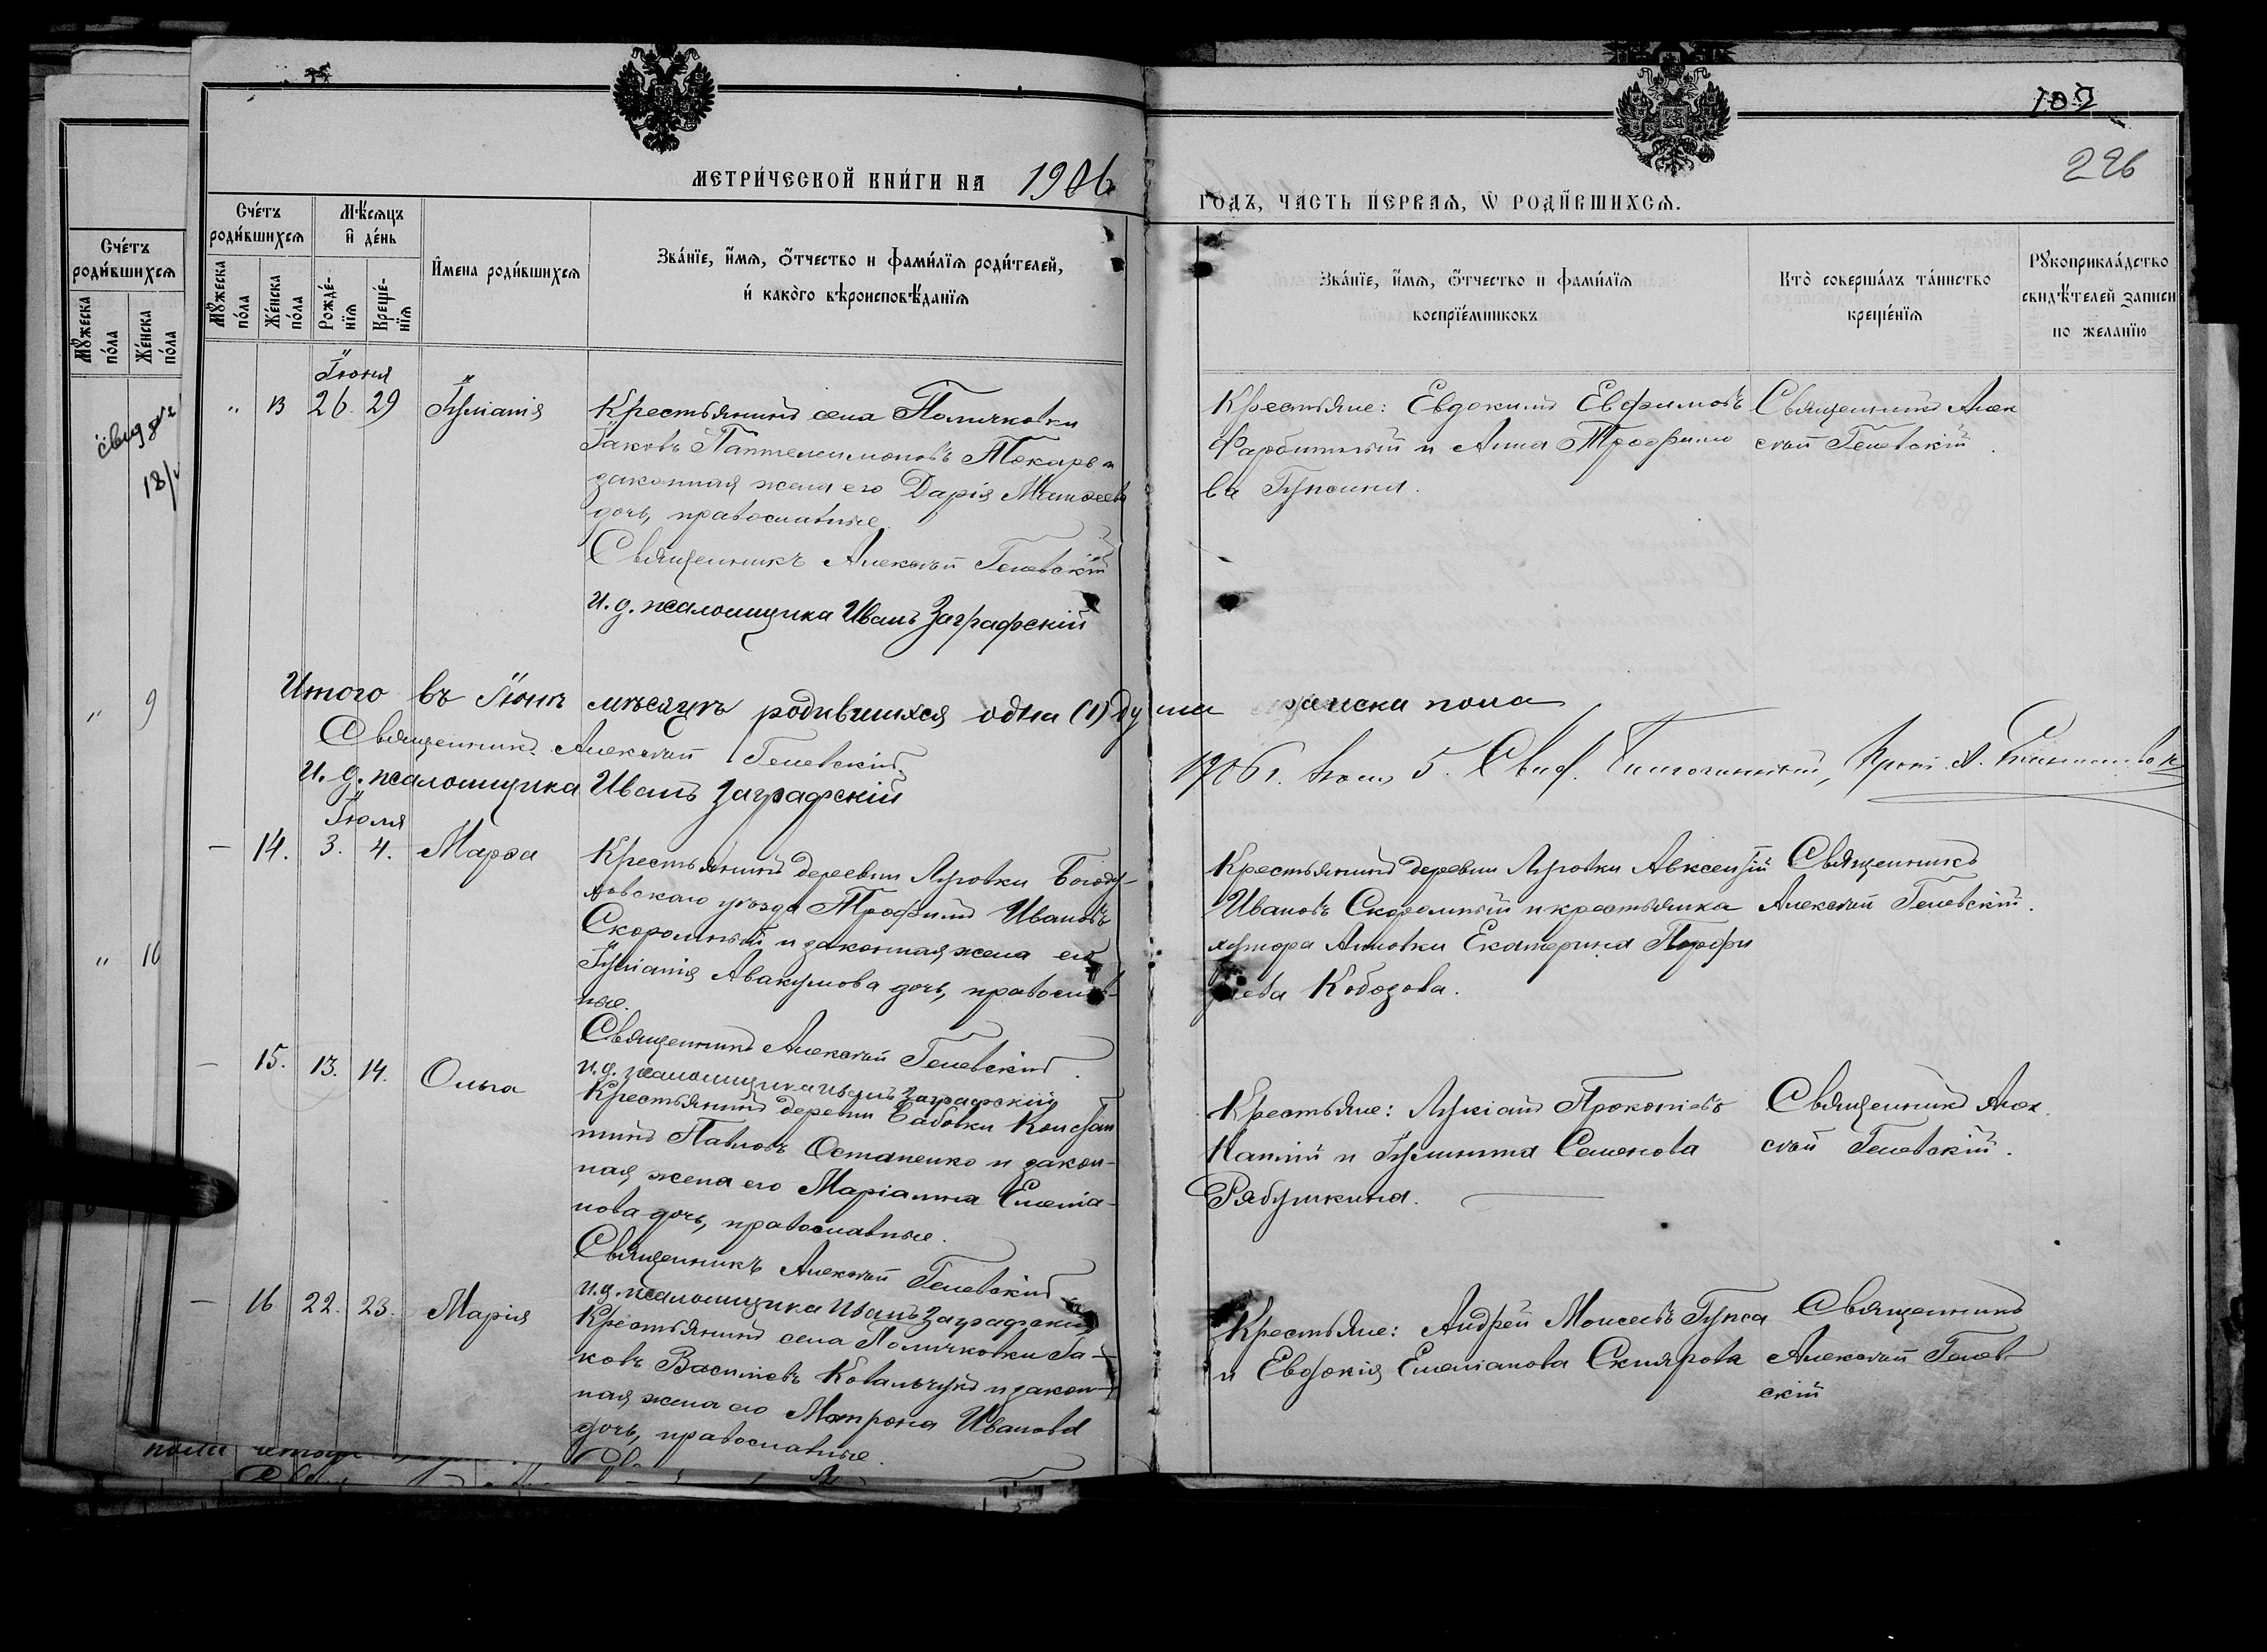 102
226
МЕТРИ́ЧЕСКОЙ КНИ́ГИ НА 1906
ГОДЪ, ЧАСТЬ ПЕРВАЯ, Ѡ РОДИ́ВШИХСЯ.
Сче́тъ роди́вшихся
Мꙋ́жеска по́ла
Же́нска по́ла
Мѣ́сяцъ и҆ де́нь
Рожде́-нїя
Креще́-нїя
И҆мена роди́вшихся
Зва́нїе, и҆́мя, ѻ҆́тчество и фами́лїя роди́телей,
и҆ како́го вѣроисповѣ́данїя
Зва́нїе, и҆́мя, ѻ҆́тчество и фами́лїя
воспрїе́мниковъ
Кто̀ соверша́лъ та́инство
креще́нїя
Рꙋкоприкла́дство
свидѣ́телей записи
по желанїю
Сче́тъ
роди́вшихся
Мꙋ́жеска по́ла
Же́нска по́ла
„ 9
„ 10
Іюня
„ 13 26. 29 Іуліанія
Крестьянинъ села Поличковки
Іаковъ Пантелеимоновъ Токарь и
законная жена его Дарія Матѳеева
дочь, православные.
Священникъ Алексѣй Геневскій
И. д. псаломщика Иванъ Заграфскій
Крестьяне: Евдокимъ Евфимовъ
и Анна Трофимо
ва Гупсина.
Священникъ Алек
сѣй Геневскій.
Итого въ Іюнѣ мѣсяцѣ родившихся одна (1) душа женска пола
Священникъ Алексѣй Геневскій
И. д. псаломщика Иванъ Заграфскій
1906 г. 5.
Іюля
— 14. 3. 4. Марѳа
Крестьянинъ деревни Луговки Богоду-
ховскаго уѣзда Трофимъ Ивановъ
Скоромный и законная жена его
Іуліанія Авакумова дочь, православ-
ные.
Священникъ Алексѣй Геневскій.
И. д. псаломщика Иванъ Заграфскій
Крестьянинъ деревни Луговки Авксентій
Ивановъ Скоромный и крестьянка
хутора Анновки Екатерина Порфи
рьева Кобозова.
Священникъ
Алексѣй Геневскій.
— 15. 13. 14. Ольга
Крестьянинъ деревни Бабовки Констан
тинъ Павловъ Остапенко и закон-
ная жена его Маріанна Емелiа-
нова дочь, православные.
Священникъ Алексѣй Геневскій
И. д. псаломщика Иванъ Заграфскій
Крестьяне: Лукіанъ Прокопіевъ
и Іулитта Семенова
Рябушкина.
Священникъ Алек
сѣй Геневскій.
— 16 22. 23. Марія
Крестьянинъ села Поличковки Іа-
ковъ Василіевъ Ковальчукъ и закон-
ная жена его Матрона Иванова
дочь, православные.
Крестьяне: Андрей Моисеевъ Гупса
и Евдокія Емеліанова Склярова
Священникъ
Алексѣй Генев-
скій